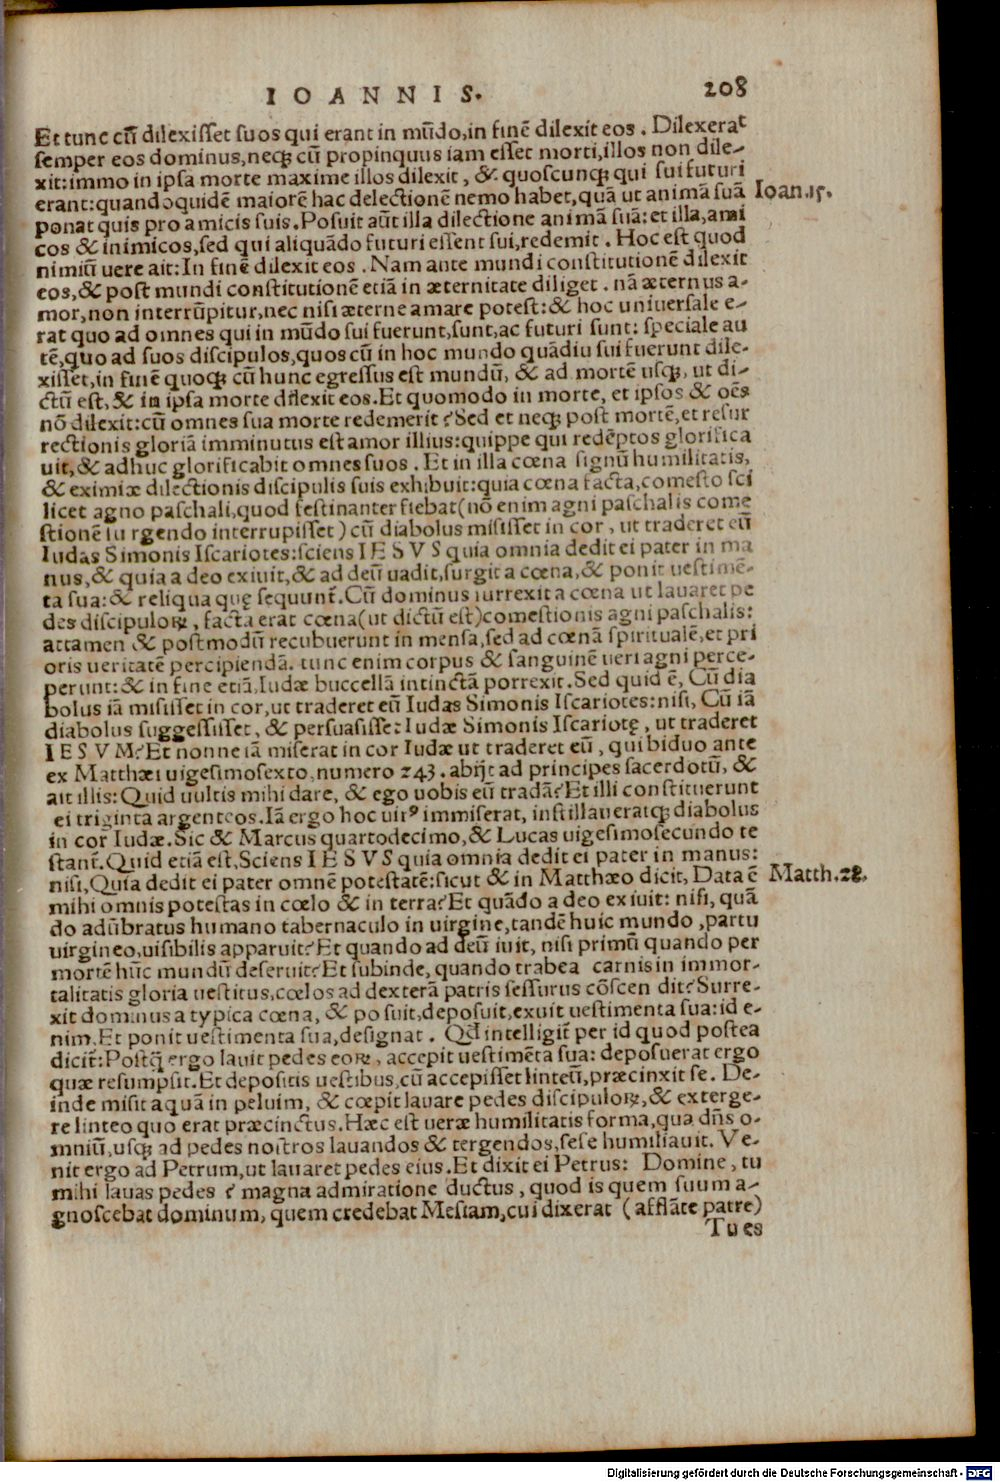 IOANNIS. 208
Et tunc cū̃ dilexiſſet ſuos qui erant in mūdo,in finē dilexit eos . Dilexerat
ſemper eos dominus,neqꝫ cū propinquus iam eſſet morti,illos non dile-
xit:immo in ipſa morte maxime illos dilexit , & quoſcunqꝫ qui ſui futuri
erant:quandoquidē maiorē hac delectionē nemo habet,quā ut animā ſuā
Ioan.15.
ponat quis pro amicis ſuis.Poſuit aūt illa dilectione animā ſuā:et illa,ami
cos & inimicos,ſed qui aliquādo futuri eſſent ſui,redemit . Hoc eſt quod
nimiū uere ait:In finē dilexit eos . Nam ante mundi conſtitutionē dilexit
eos,& poſt mundi conſtitutionē etiā in æternitate diliget . nā æternus a-
mor,non interrūpitur,nec niſi æterne amare poteſt:& hoc uniuerſale e-
rat quo ad omnes qui in mūdo ſui fuerunt,ſunt,ac futuri ſunt: ſpeciale au
tē,quo ad ſuos diſcipulos,quos cū in hoc mundo quādiu ſui fuerunt dile-
xiſſet,in finē quoqꝫ cū hunc egreſſus eſt mundū, & ad mortē uſqꝫ, ut di-
ctū eſt,& in ipſa morte dilexit eos.Et quomodo in morte, et ipſos & oēs
nō dilexit:cū omnes ſua morte redemerit ? Sed et neqꝫ poſt mortē,et reſur
rectionis gloriā imminutus eſt amor illius:quippe qui redēptos glorifica
uit,& adhuc glorificabit omnes ſuos . Et in illa cœna ſignū humilitatis,
& eximiæ dilectionis diſcipulis ſuis exhibuit:quia cœna facta,comeſto ſci
licet agno paſchali,quod feſtinanter fiebat(nō enim agni paſchalis come
ſtionē ſurgendo interrupiſſet) cū diabolus miſiſſet in cor , ut traderet eū
Iudas Simonis Iſcariotes:ſciens IESVS quia omnia dedit ei pater in ma
nus,& quia a deo exiuit,& ad deū uadit,ſurgit a cœna,& ponit ueſtimē-
ta ſua:& reliqua quę ſequunt̃.Cū dominus ſurrexit a cœna ut lauaret pe
des diſcipuloꝝ, facta erat cœna(ut dictū eſt)comeſtionis agni paſchalis:
attamen & poſtmodū recubuerunt in menſa,ſed ad cœnā ſpiritualē,et pri
oris ueritatē percipiendā. tunc enim corpus & ſanguinē ueri agni perce-
perunt:& in fine etiā,Iudæ buccellā intinctā porrexit.Sed quid ē, Cū dia
bolus iā miſiſſet in cor,ut traderet eū Iudas Simonis Iſcariotes:niſi, Cū iā
diabolus ſuggeſſiſſet, & perſuaſiſſet Iudæ Simonis Iſcariotę, ut traderet
IESVM?Et nonne iā miſerat in cor Iudæ ut traderet eū , qui biduo ante
ex Matthæi uigeſimoſexto,numero 243.abijt ad principes ſacerdotū, &
ait illis:Quid uultis mihi dare, & ego uobis eū tradā?Et illi conſtituerunt
ei triginta argenteos.Iā ergo hoc uirꝰ immiſerat, inſtillaueratqꝫ diabolus
in cor Iudæ.Sic & Marcus quartodecimo,& Lucas uigeſimoſecundo te
ſtant̃.Quid etiā eſt,Sciens IESVS quia omnia dedit ei pater in manus:
niſi,Quia dedit ei pater omnē poteſtatē:ſicut & in Matthæo dicit, Data ē
Matth.28.
mihi omnis poteſtas in cœlo & in terra?Et quādo a deo exiuit: niſi, quā
do adūbratus humano tabernaculo in uirgine,tandē huic mundo ,partu
uirgineo,uiſibilis apparuit?Et quando ad deū iuit, niſi primū quando per
mortē hūc mundū deſeruit?Et ſubinde, quando trabea carnis in immor-
talitatis gloria ueſtitus,cœlos ad dexterā patris ſeſſurus cōſcendit?Surre-
xit dominus a typica cœna, & poſuit,depoſuit,exuit ueſtimenta ſua:id e-
nim,Et ponit ueſtimenta ſua,deſignat . Qd̃ intelligit̃ per id quod poſtea
dicit̃:Poſtq̃ ergo lauit pedes eoꝝ, accepit ueſtimēta ſua: depoſuerat ergo
quæ reſumpſit.Et depoſitis ueſtibus,cū accepiſſet linteū,præcinxit ſe. De-
inde miſit aquā in peluim, & cœpit lauare pedes diſcipuloꝝ,& exterge-
re linteo quo erat præcinctus.Hæc eſt ueræ humilitatis forma,qua dn̄s o-
mniū,uſqꝫ ad pedes noſtros lauandos & tergendos,ſeſe humiliauit. Ve-
nit ergo ad Petrum,ut lauaret pedes eius.Et dixit ei Petrus: Domine, tu
mihi lauas pedes ? magna admiratione ductus , quod is quem ſuum a-
gnoſcebat dominum, quem credebat Meſiam,cui dixerat (afflāte patre)
Tu es
Digitalisierung gefördert durch die Deutsche Forschungsgemeinschaft - DFG